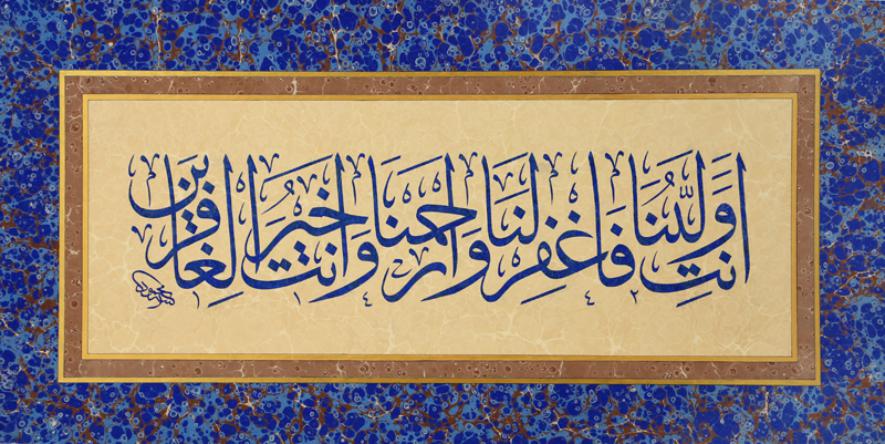 اَنتَ وَلِيُّنَا فَاغْفِرْ لَنَا وَارْحَمْنَا وَاَنتَ خَيْرُ الْغَافِرِينَ